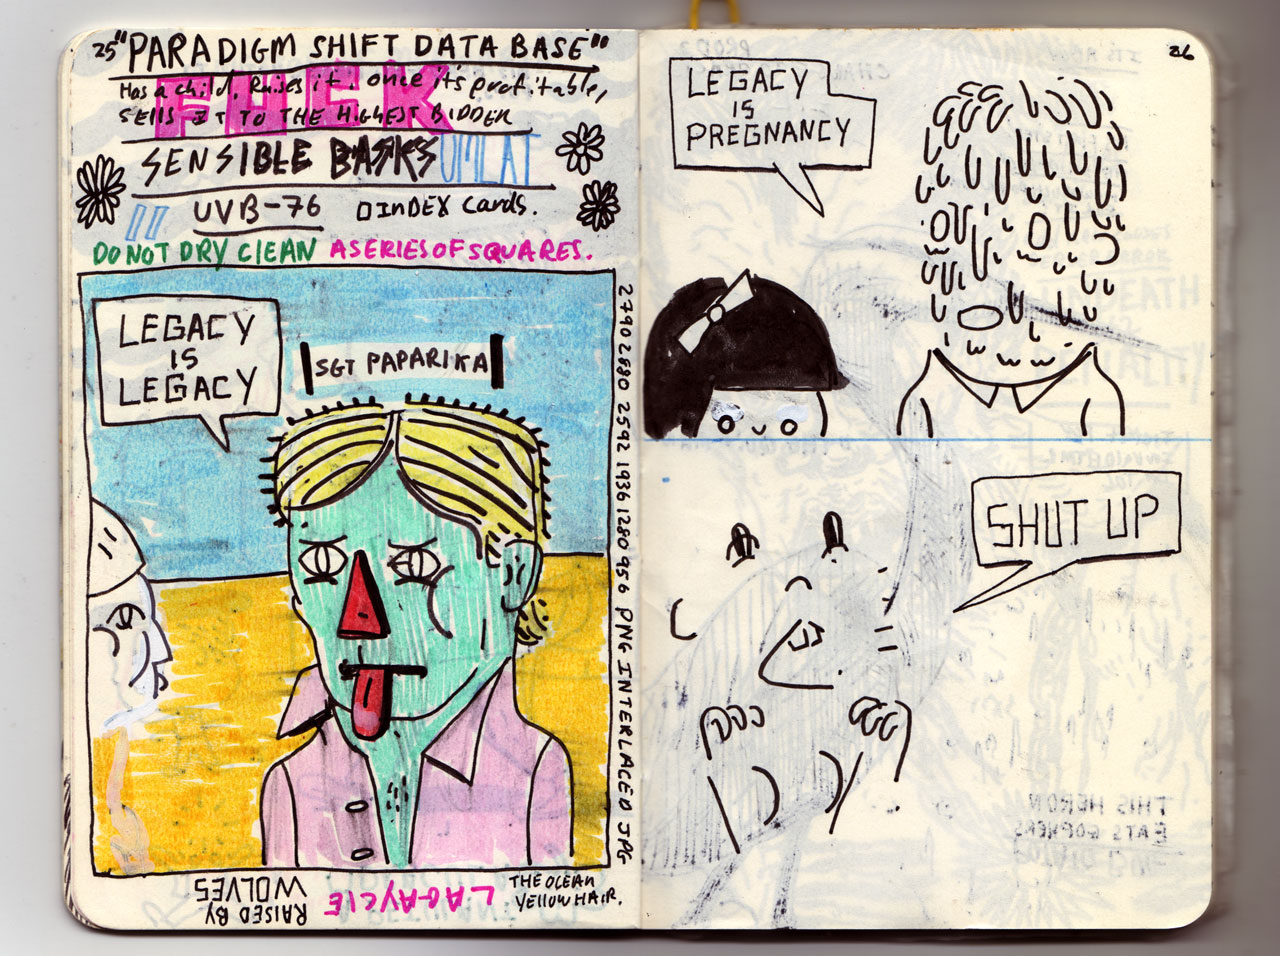 25 "PARADIGM SHIFT DATA BASE"
FUCK
Has a child, Raises it, once it's profitable,
SELLS IT TO THE HIGHEST BIDDER
SENSIBLE BASKS UMLAT
UVB-76 INDEX Cards.
DO NOT DRY CLEAN A SERIES OF SQUARES.
LEGACY
IS
LEGACY
SGT PAPARIKA
2790 2880 2592 1936 1280 956 PNG INTERLACED JPG
RAISED BY
WOLVES
LAGAYCIE
THE OCEAN
YELLOW HAIR.
26
LEGACY
IS
PREGNANCY
SHUT UP
THIS HERON
EATS GOPHERS